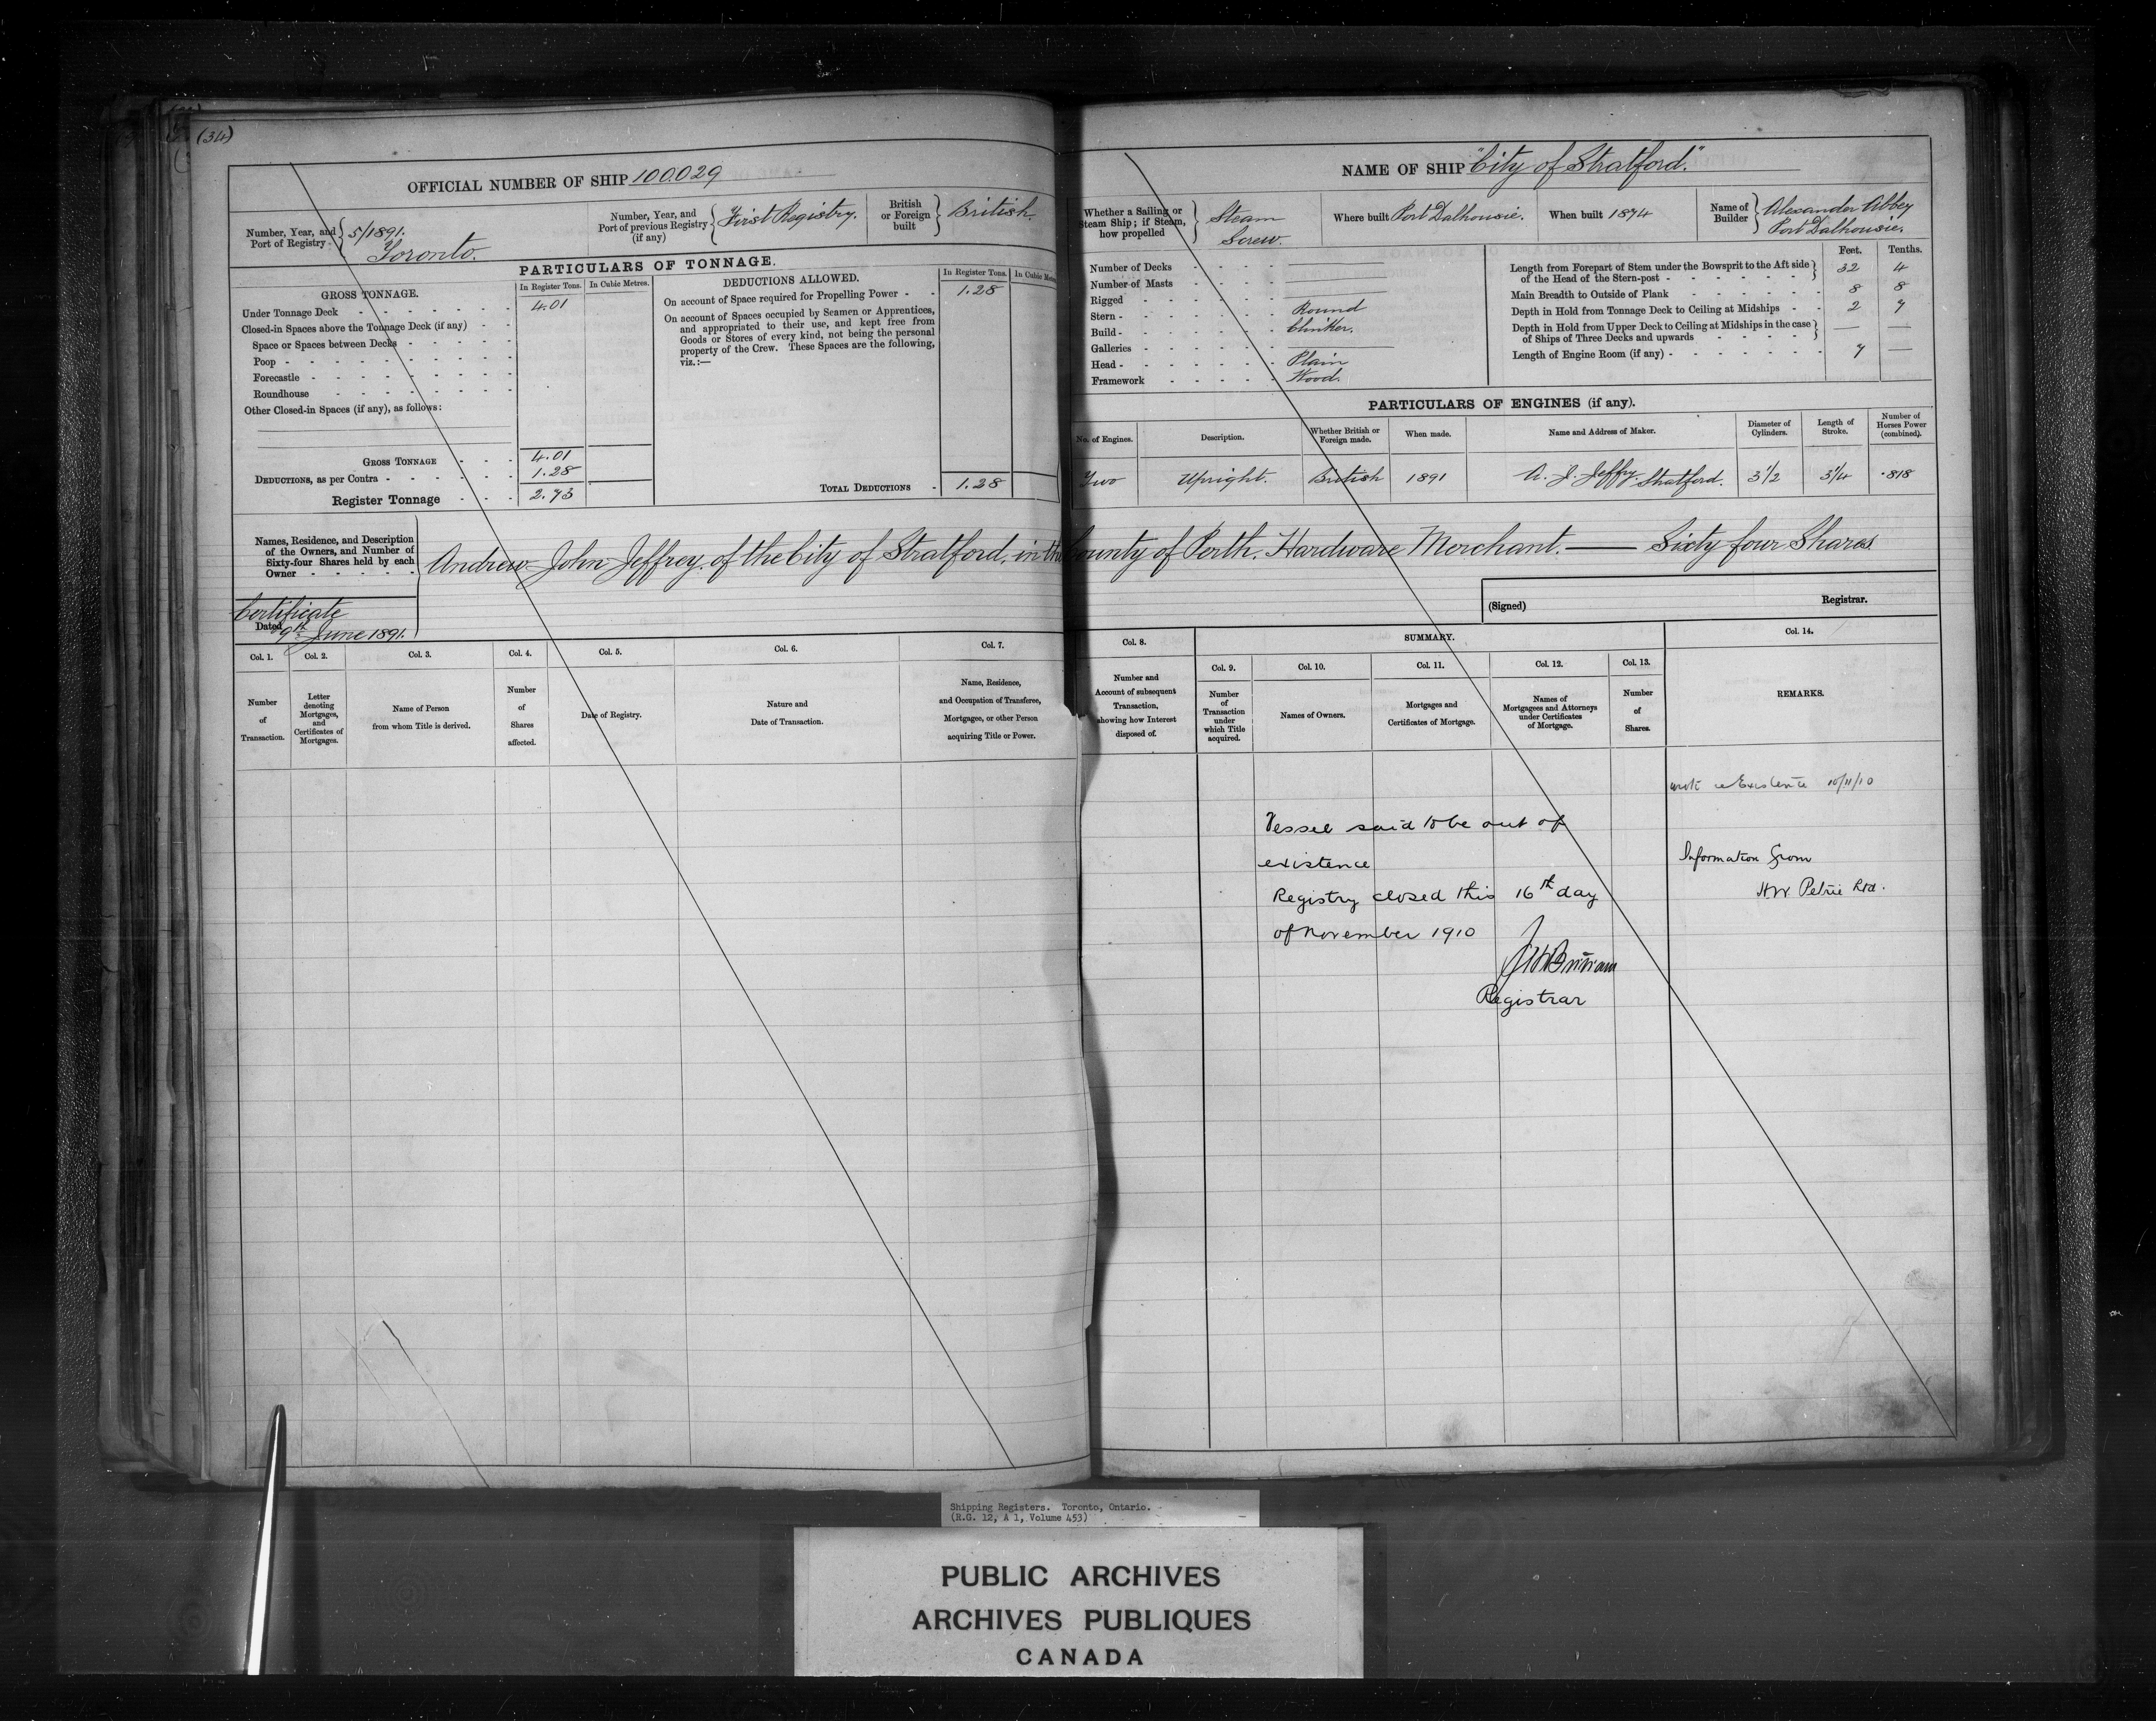 (34)
OFFICIAL NUMBER OF SHIP 100.029
Number, Year, and Port of Registry 5/1891. Toronto.
Number, Year, and Port of previous Registry (if any) First Registry.
British or Foreign built British.
PARTICULARS OF TONNAGE.
GROSS TONNAGE.
In Register Tons. In Cubic Metres.
Under Tonnage Deck 4.01
Closed-in Spaces above the Tonnage Deck (if any)
Space or Spaces between Decks
Poop
Forecastle
Roundhouse
Other Closed-in Spaces (if any), as follows:
GROSS TONNAGE 4.01
DEDUCTIONS, as per Contra 1.28
Register Tonnage 2.73
DEDUCTIONS ALLOWED.
In Register Tons. In Cubic Metres
On account of Space required for Propelling Power 1.28
On account of Spaces occupied by Seamen or Apprentices,
and appropriated to their use, and kept free from
Goods or Stores of every kind, not being the personal
property of the Crew. These Spaces are the following,
viz.:—
TOTAL DEDUCTIONS 1.28
NAME OF SHIP "City of Stratford."
Whether a Sailing or Steam Ship; if Steam, how propelled Steam Screw.
Where built Port Dalhousie.
When built 1874
Name of Builder Alexander Abbey Port Dalhousie.
Number of Decks
Number of Masts
Rigged
Stern Round
Build Clinker.
Galleries
Head Plain
Framework Wood.
Feet. Tenths.
Length from Forepart of Stem under the Bowsprit to the Aft side of the Head of the Stern-post 32 4
Main Breadth to Outside of Plank 8 8
Depth in Hold from Tonnage Deck to Ceiling at Midships 2 7
Depth in Hold from Upper Deck to Ceiling at Midships in the case of Ships of Three Decks and upwards — —
Length of Engine Room (if any) 7 —
PARTICULARS OF ENGINES (if any).
No. of Engines. Description. Whether British or Foreign made. When made. Name and Address of Maker. Diameter of Cylinders. Length of Stroke. Number of Horses Power (combined).
Two Upright. British 1891 A. J. Jeffry. Stratford. 3 1/2 3 1/4 .818
Names, Residence, and Description
of the Owners, and Number of
Sixty-four Shares held by each
Owner
Andrew John Jeffrey, of the City of Stratford, in the County of Perth, Hardware Merchant. — Sixty four Shares
Certificate
Dated 9th June 1891.
(Signed) Registrar.
Col. 1. Col. 2. Col. 3. Col. 4. Col. 5. Col. 6. Col. 7.
Number of Transaction.
Letter denoting Mortgages, and Certificates of Mortgages.
Name of Person from whom Title is derived.
Number of Shares affected.
Date of Registry.
Nature and Date of Transaction.
Name, Residence, and Occupation of Transferee, Mortgagee, or other Person acquiring Title or Power.
Col. 8. SUMMARY. Col. 14.
Col. 9. Col. 10. Col. 11. Col. 12. Col. 13.
Number and Account of subsequent Transaction, showing how Interest disposed of.
Number of Transaction under which Title acquired.
Names of Owners.
Mortgages and Certificates of Mortgage.
Names of Mortgagees and Attorneys under Certificates of Mortgage.
Number of Shares.
REMARKS.
wrote re Existence 10/11/10
Vessel said to be out of
existence
Registry closed this 16th day
of November 1910
Registrar
Information from
H.W. Petrie Ltd.
Shipping Registers. Toronto, Ontario.
(R.G. 12, A 1, Volume 453)
PUBLIC ARCHIVES
ARCHIVES PUBLIQUES
CANADA